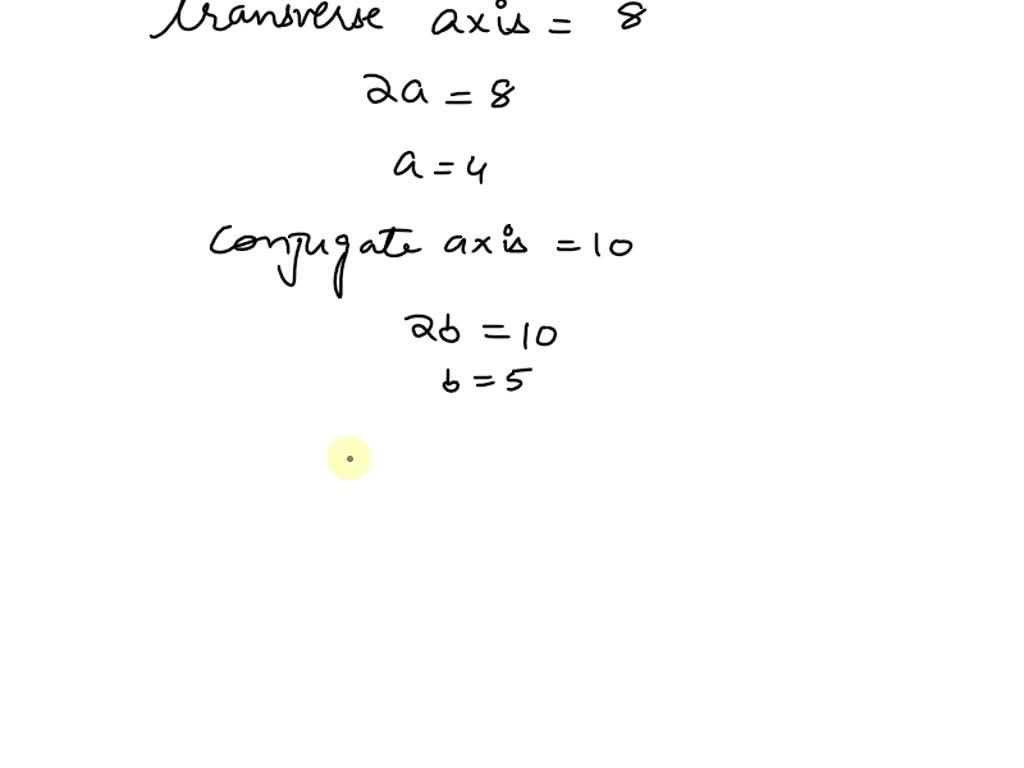 transverse axis = 8
2a = 8
a = 4
conjugate axis = 10
2b = 10
b = 5